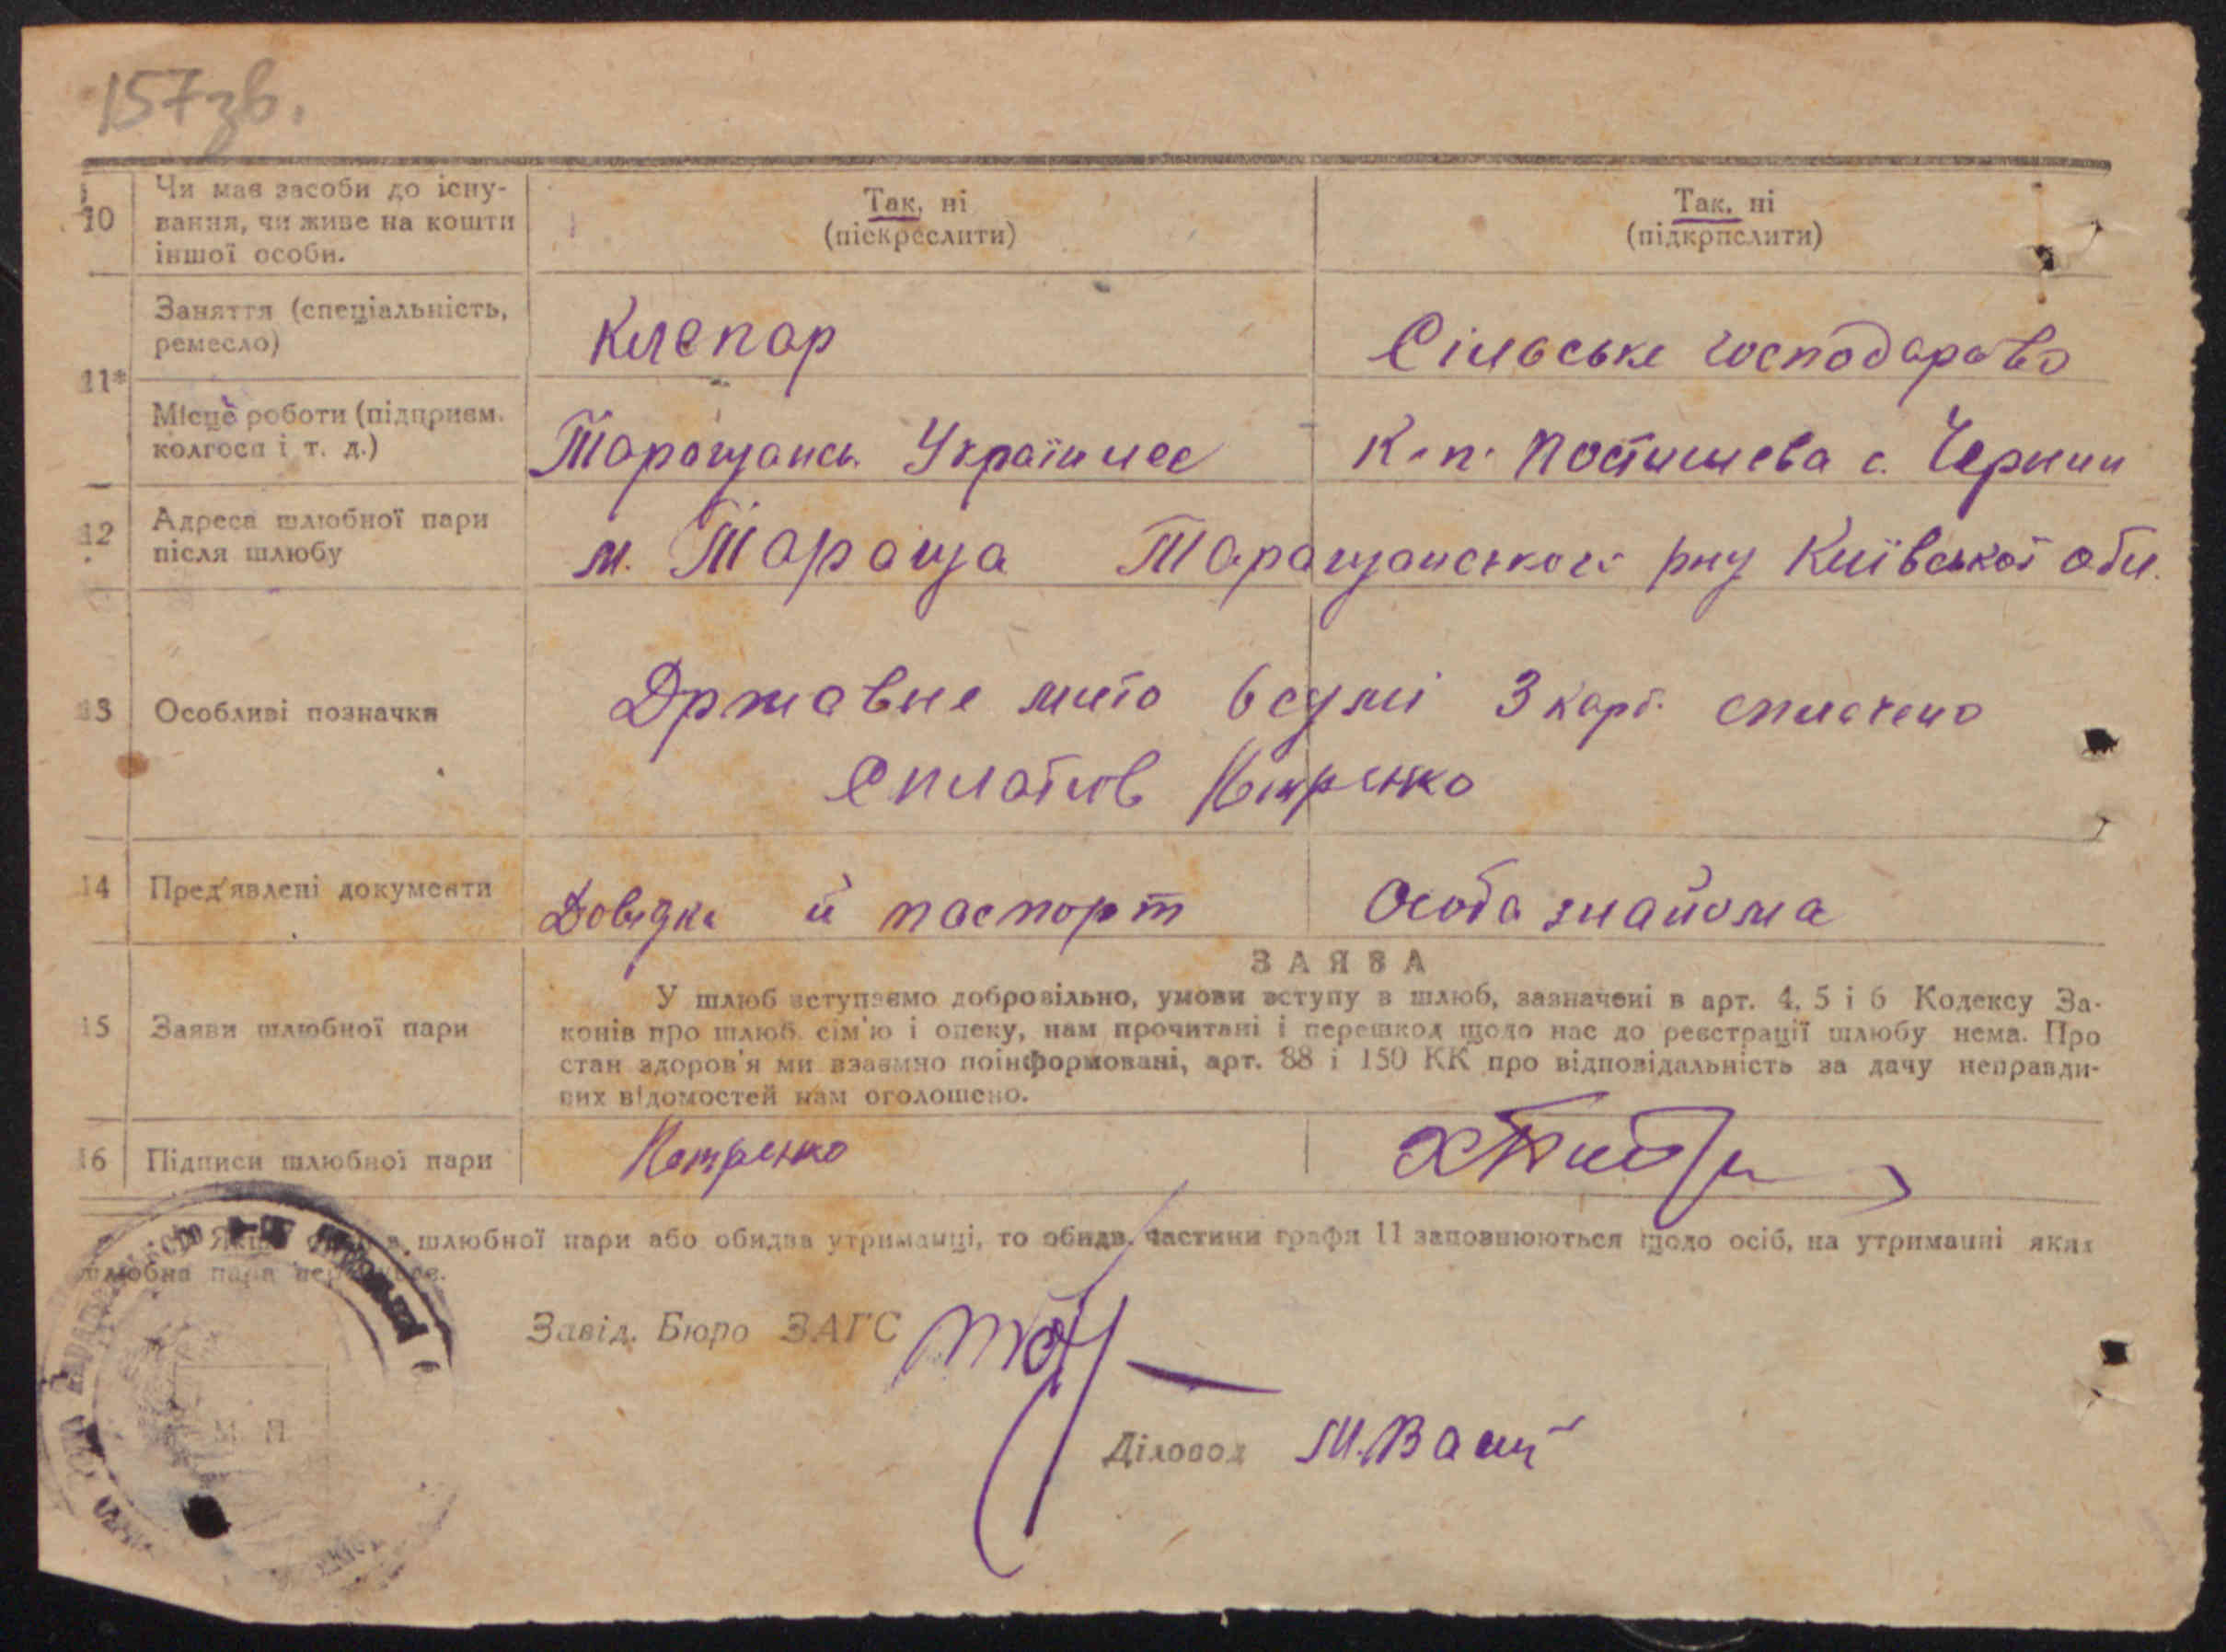 157зв.
10
Чи має засоби до існу-
вання, чи живе на кошти
іншої особи.
Так, ні
(піскреслити)
Так, ні
(підкрпслити)
11*
Заняття (спеціальність,
ремесло)
Клепар
Сільське господарство
Місце роботи (підприєм.
колгосп і т. д.)
Таращанськ. Українлес
К-п. Постишева с. Чернин
12
Адреса шлюбної пари
після шлюбу
м. Тараща Таращанського рну Київської обл.
13
Особливі позначки
Државне мито в сумі 3 карб. сплачено
Сплатив Петренко
14
Пред'явлені документи
Довідка й паспорт
Особа знайома
ЗАЯВА
15
Заяви шлюбної пари
У шлюб вступаємо добровільно, умови вступу в шлюб, зазначені в арт. 4, 5 і 6 Кодексу За-
конів про шлюб, сім'ю і опеку, нам прочитані і перешкод щодо нас до реєстрації шлюбу нема. Про
стан здоров'я ми взаємно поінформовані, арт. 88 і 150 КК про відповідальність за дачу неправди-
вих відомостей нам оголошено.
16
Підписи шлюбної пари
Петренко
шлюбної пари або обидва утриманці, то обидв. частини графи 11 заповнюються щодо осіб, на утриманні яких
шлюбна пара
Завід. Бюро ЗАГС
Діловод
М. П.